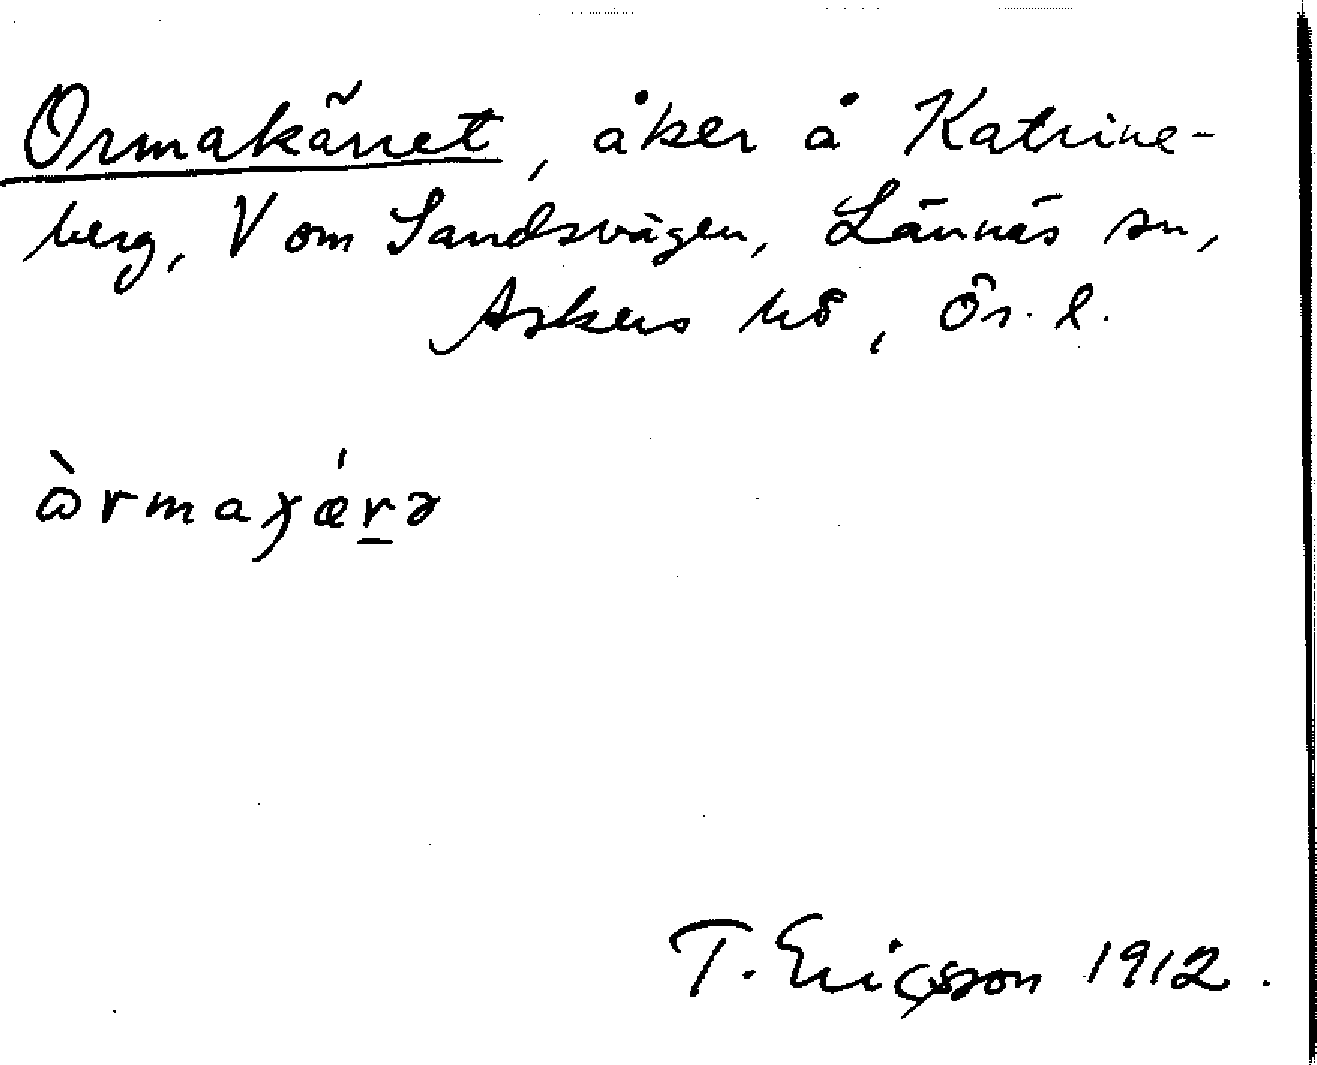 Ormakärret, åker å Katrine-
berg, V om Sandsvägen, Lännäs sn,
Askers hd, Ör. l.
ὼrmaχǽr̲ə
T. Ericsson 1912.